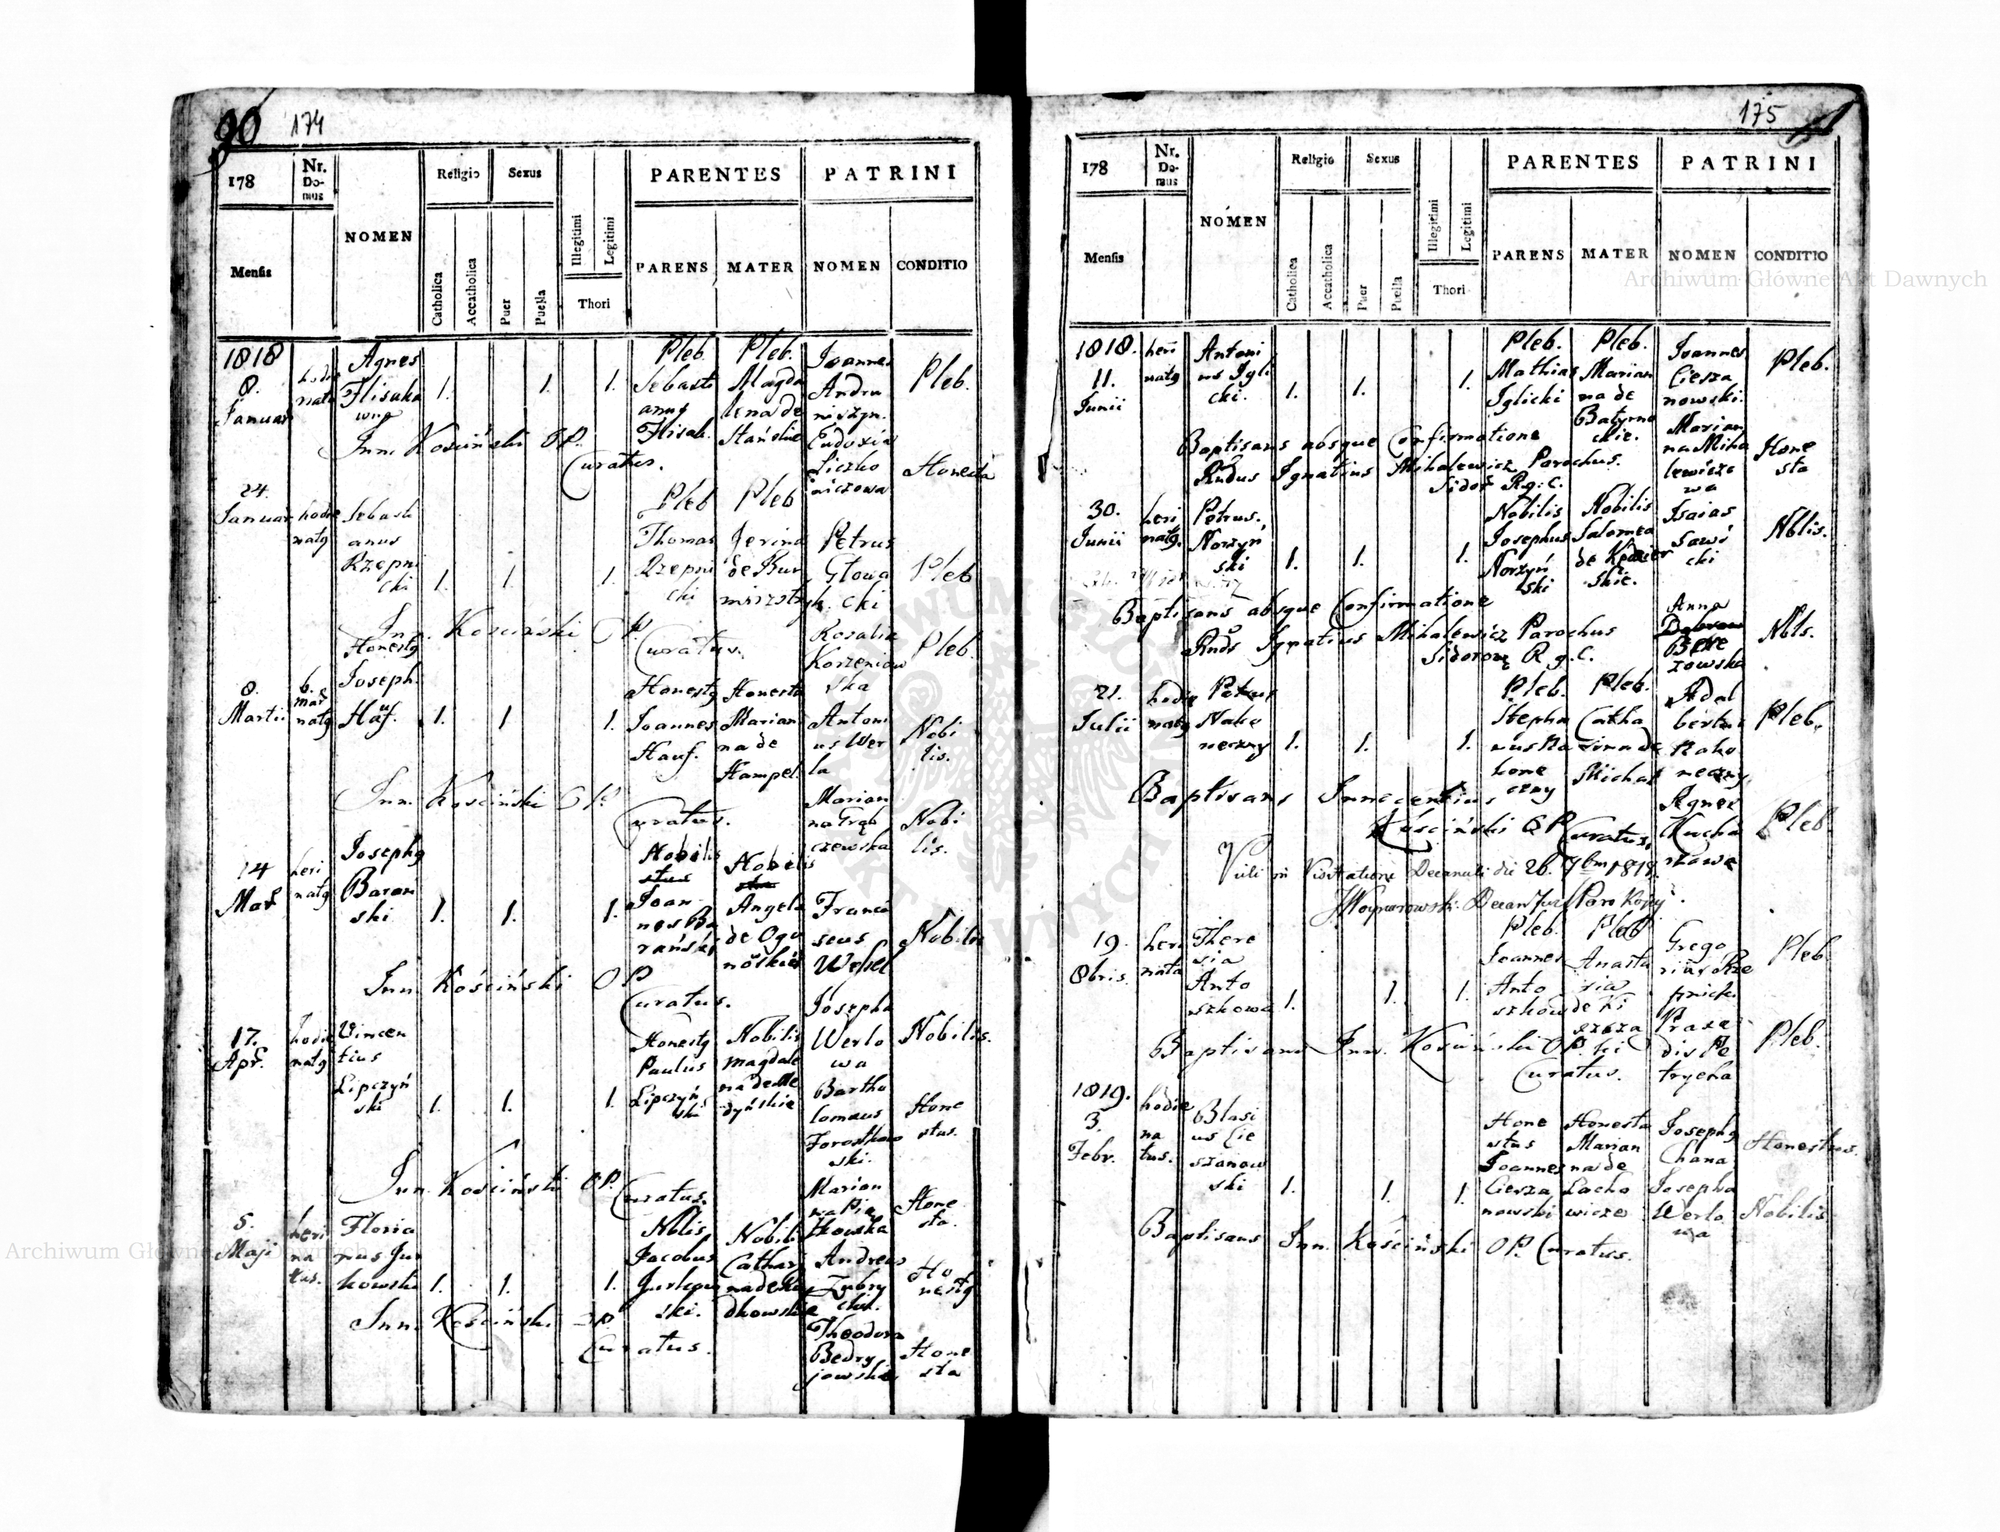 90 174
178
Nr. Domus
NOMEN
Religio
Sexus
PARENTES
PATRINI
Mensis
Catholica
Accatholica
Puer
Puella
Illegitimi
Legitimi
Thori
PARENS
MATER
NOMEN
CONDITIO
1818
8.
Januar
hodie
nata
Agnes
Flisaka
wng
1. 1. 1.
Pleb.
Sebasti
anus
Flisak.
Pleb.
Magda
lena de
Stańskie
Joannes
Andru
niszyn.
Eudoxia
Liczko
niczowa
Pleb.
Honesta
Inn. Kosciński OP.
Curatus.
24.
Januar
hodie
natg
Sebasti
anus
Rzepni
cki
1. 1. 1.
Pleb
Thomas
Rzepni
cki
Pleb
de Bur
Petrus
Głowa
cki
Rosalia
Korzeniow
ska
Pleb
Pleb.
Inn. Kosciński OP
Curatus.
8.
Martii
6.
mar
natg
Honestg
Joseph.
Hauf.
1. 1 1.
Honestg
Joannes
Hauf.
Honesta
Marian
na de
Hampel.
Antoni
us Wer
la
Marian
na Grąb
czewska
Nobi
lis.
Nobi
lis.
Inn. Kosciński OP
Curatus.
14
Mar
heri
natg
Josephg
Baran
ski
1. 1. 1.
Nobilis
Joan
nes Ba
rański
Nobilis
Angela
de Ogo
nośkie
Franci
scus
Wessel
Josepha
Werlo
wa
Nobilis
Nobilis.
Inn. Kościński OP
Curatus.
17.
Apr.
hodie
natg
Vincen
tius
Lipczyń
ski
1. 1. 1.
Honestg
Paulus
Lipczyń
ski
Nobilis
Magdale
na de Me
dyńskie
Bartho
lomaus
Forostkow
ski.
Marian
na Pią
tkowska
Hone
stus.
Hone
sta.
Inn. Kościński OP.
Curatus.
5.
Maji
heri
na
tus.
Floria
nus Jur
kowski
1. 1. 1.
Nblis
Jacobus
Jurkow
ski.
Nobilis
Cathari
na de Ra
dkowskie
Andreas
Zubry
cki.
Theodora
Bedry
jowska
Ho
nestg
Hone
sta
Inn. Kościński OP.
Curatus.
175
178
Nr. Domus
NOMEN
Religio
Sexus
PARENTES
PATRINI
Mensis
Catholica
Accatholica
Puer
Puella
Illegitimi
Legitimi
Thori
PARENS
MATER
NOMEN
CONDITIO
1818.
11.
Junii
heri
natg
Antoni
us Igli
cki.
1. 1. 1.
Pleb.
Mathias
Iglicki
Pleb.
Marian
na de
Batyrno
ckie.
Joannes
Ciesza
nowski.
Marian
na Miha
lewicze
wa
Pleb.
Hone
sta
Baptisans absque Confirmatione
Rndus Ignatius Mihalewicz Parochus.
Sidor R.g.C.
30.
Junii
heri
natg.
Petrus.
Norzyń
ski
1. 1. 1.
Nobilis
Josephus
Norzyń
ski
Nobilis
Salomea
de
skie.
Isaias
Sawi
cki
Anna
zowska
Nblis.
Nbls.
Baptisans absque Confirmatione
Rnds Ignatius Mihalewicz Parochus
Sidorow R.g.C.
21.
Julii
hodie
natg
Petrus
Nako
neczny
1. 1. 1.
Pleb.
Stepha
nus Na
kone
czny
Pleb.
Catha
rina de
Michal
Adal
bertus
Nako
neczny
Agnes
Kucha
rkowa
Pleb.
Pleb.
Baptisans Innocentius
Kościński OP Curatus.
Vidi in Visitatione Decanali die 26. 7bris 1818.
19.
8bris.
heri
nata
There
sia
Anto
szkowa
1. 1. 1.
Pleb.
Joannes
Anto
szkow
Pleb
Anasta
sia
de Ki
szcza
ki
Grego
rius Rze
pnick.
Praxe
dis Pe
trycha
Pleb.
Pleb.
Baptisans Inn. Kosciński OP.
Curatus.
1819.
3.
Febr.
hodie
na
tus.
Blasi
us Cie
szanow
ski
1. 1. 1.
Hone
stus
Joannes
Ciesza
nowski
Honesta
Marian
na de
Lacho
wicze
Josephg
Chana
Josepha
Werlo
wa
Honestus.
Nobilis.
Baptisans Inn. Kościński OP. Curatus.
Archiwum Główne Akt Dawnych
Archiwum Główne Akt Dawnych